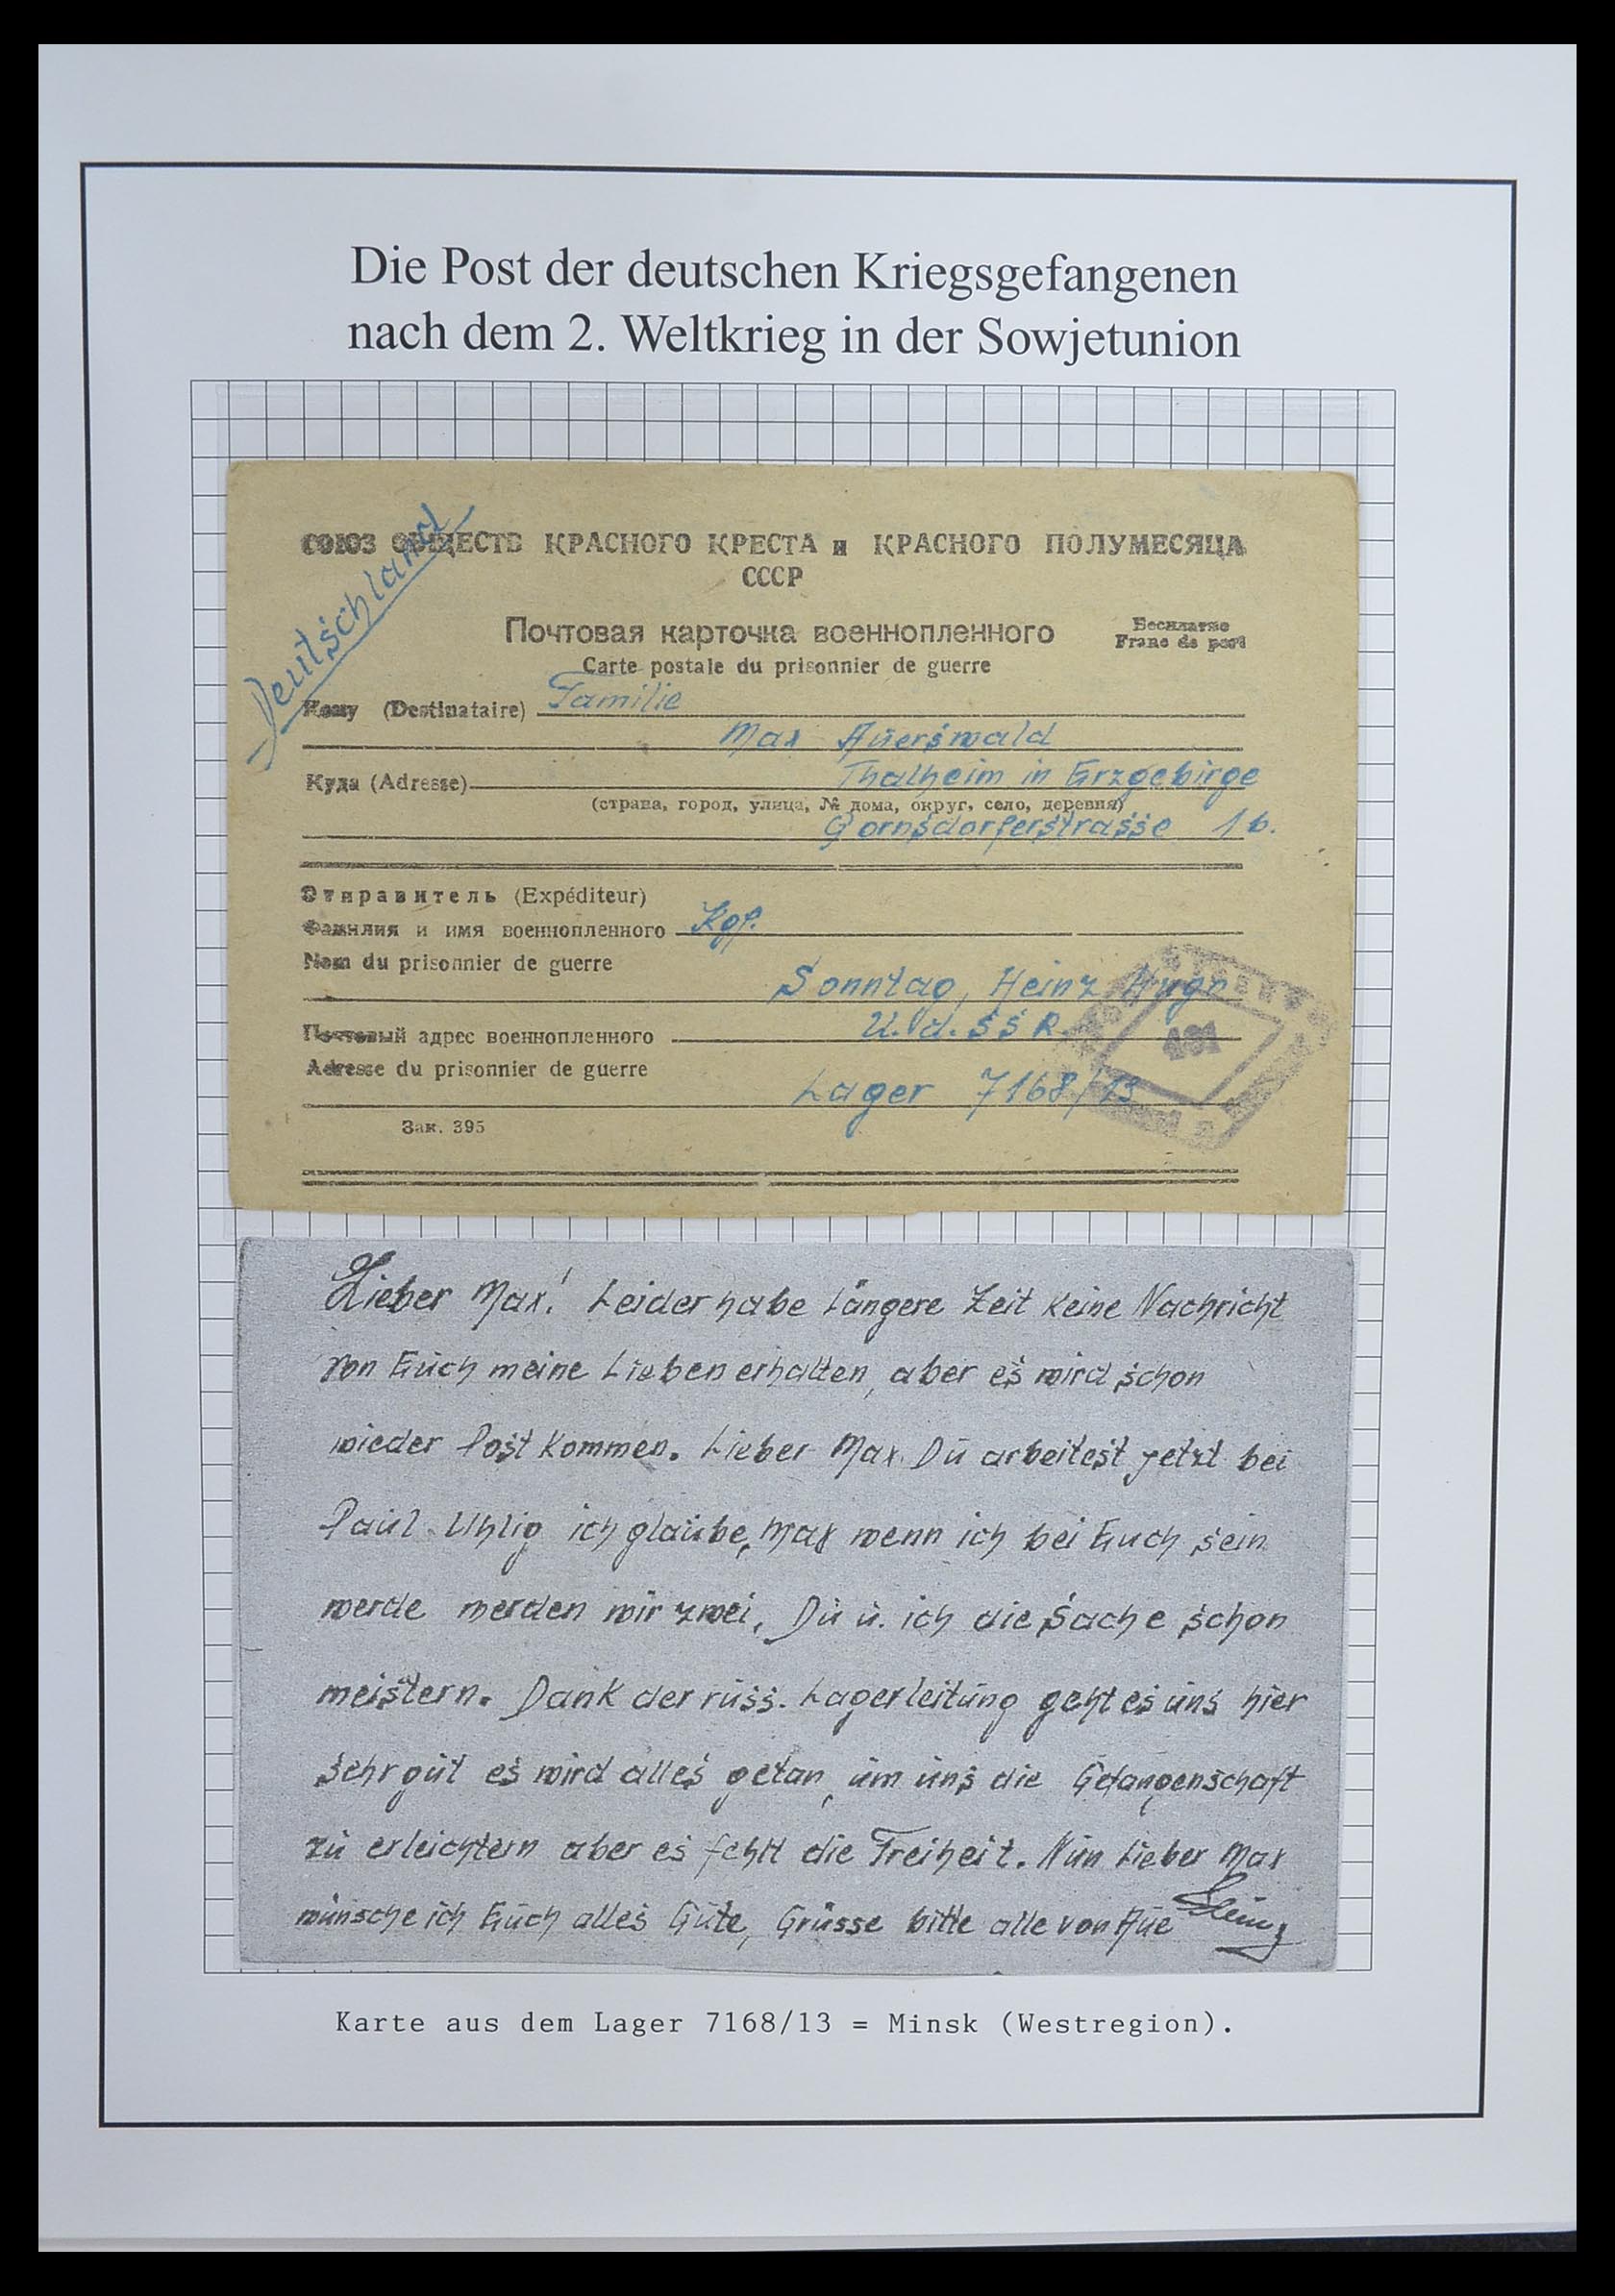 Die Post der deutschen Kriegsgefangenen
nach dem 2. Weltkrieg in der Sowjetunion
Deutschland
СОЮЗ ОБЩЕСТВ КРАСНОГО КРЕСТА и КРАСНОГО ПОЛУМЕСЯЦА
СССР
Почтовая карточка военнопленного
Бесплатно
Franc de port
Carte postale du prisonnier de guerre
Кому (Destinataire) Familie
Max Auerswald
Куда (Adresse) Thalheim in Erzgebirge
(страна, город, улица, № дома, округ, село, деревня)
Gornsdorferstrasse 1b.
Отправитель (Expéditeur)
Фамилия и имя военнопленного Kgf.
Nom du prisonnier de guerre
Sonntag, Heinz Hugo
Почтовый адрес военнопленного U.d.SSR.
Adresse du prisonnier de guerre
Lager 7168/13
Зак. 395
Lieber Max! Leider habe längere Zeit keine Nachricht
von Euch meine Lieben erhalten, aber es wird schon
wieder Post kommen. Lieber Max. Du arbeitest jetzt bei
Paul Uhlig ich glaube, Max wenn ich bei Euch sein
werde werden wir zwei, Du u. ich die Sache schon
meistern. Dank der russ. Lagerleitung geht es uns hier
sehr gut es wird alles getan, um uns die Gefangenschaft
zu erleichtern aber es fehlt die Freiheit. Nun lieber Max
wünsche ich Euch alles Gute, Grüsse bitte alle von Aue Heinz
Karte aus dem Lager 7168/13 = Minsk (Westregion).